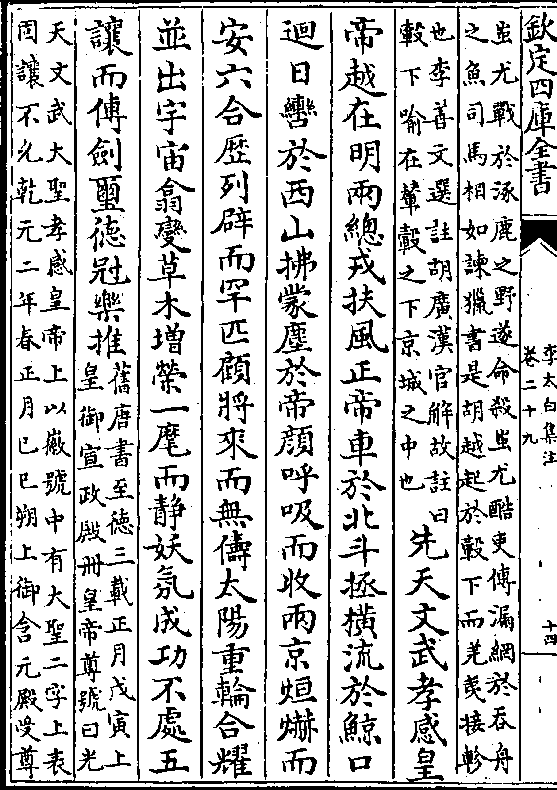 欽定四庫全書
李太白集注
卷二十九
十四
蚩尤戰於涿鹿之野遂命殺蚩尤酷吏傳漏網於吞舟
之魚司馬相如諫獵書是胡越起於轂下而羌夷接軫
也李善文選註胡廣漢官解故註曰
轂下喻在輦轂之下京城之中也
先天文武孝感皇
帝越在明兩總戎扶風正帝車於北斗拯橫流於鯨口
迴日轡於西山拂蒙塵於帝顏呼吸而收兩京烜爀而
安六合歷列辟而罕匹顧將來而無儔太陽重輪合耀
並出宇宙翕變草木增榮一麾而靜妖氛成功不處五
讓而傳劍璽德冠樂推
舊唐書至德三載正月戊寅上
皇御宣政殿冊皇帝尊號曰光
天文武大聖孝感皇帝上以徽號中有大聖二字上表
固讓不允乾元二年春正月巳巳朔上御含元殿受尊